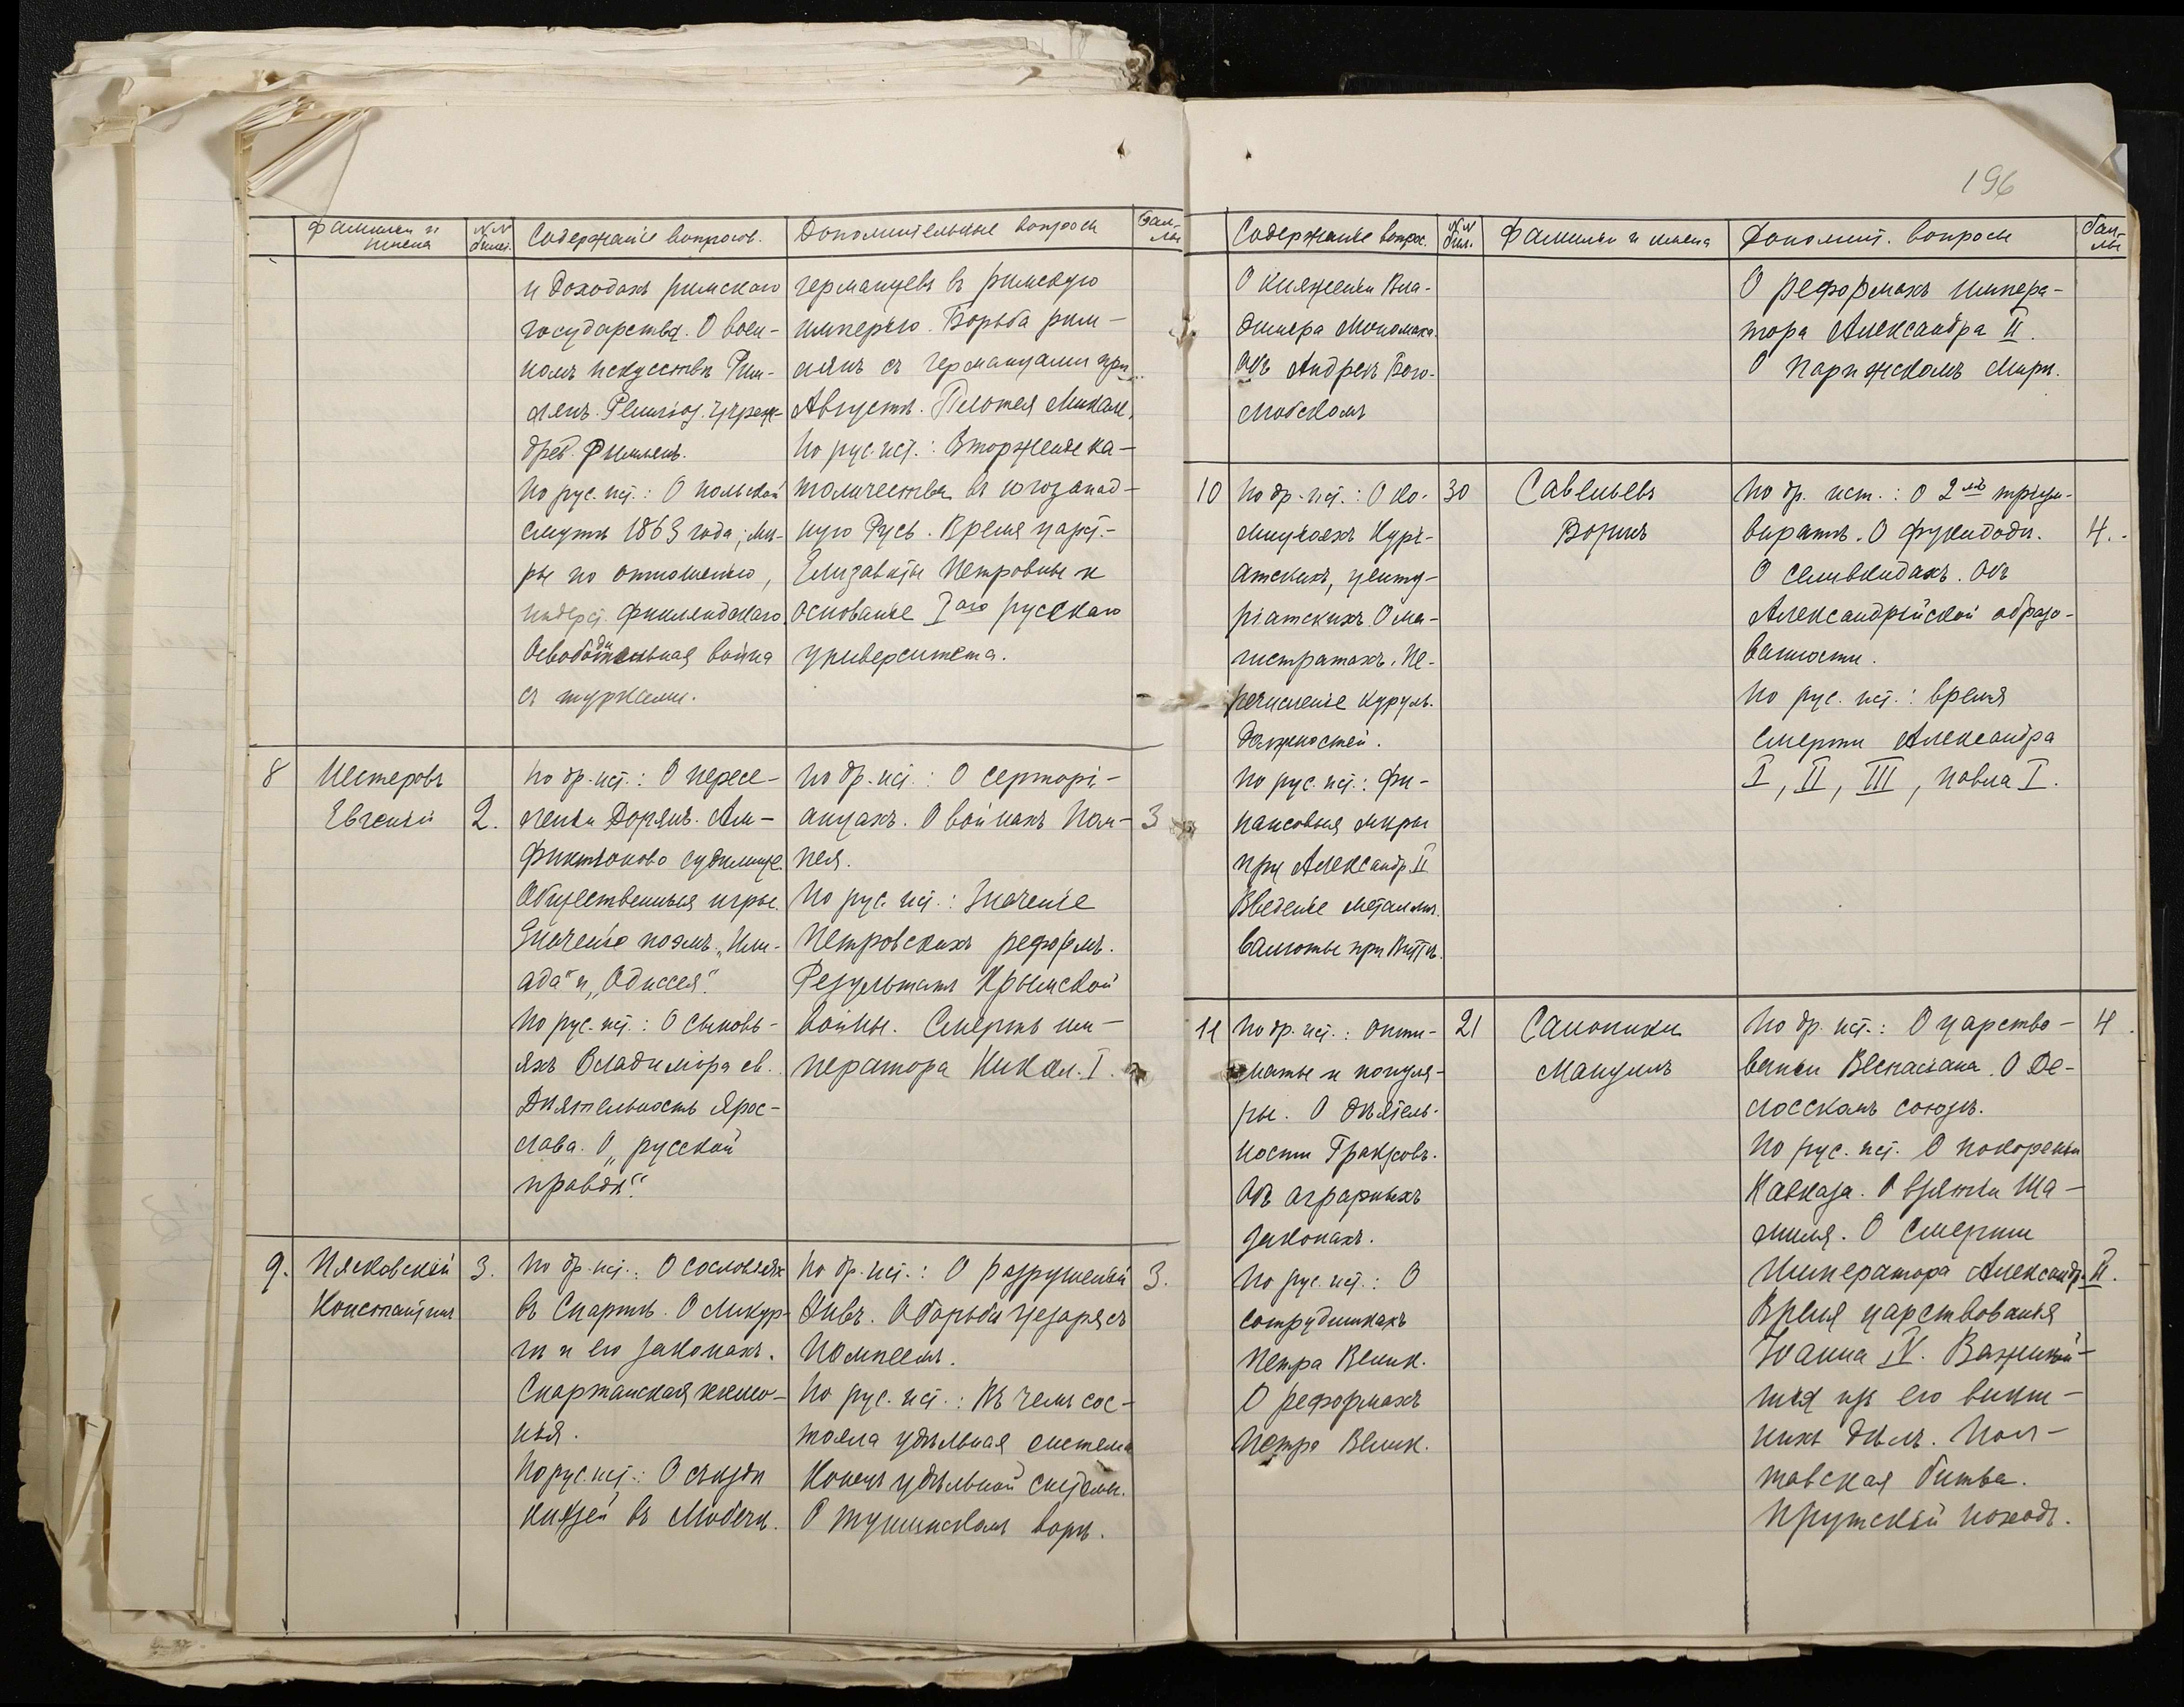 Фамиліи и
имена
№№
билет.
Содержаніе вопросов.
Дополнительные вопросы
Бал-
лы
и доходахъ римскаго
государства. О воен-
номъ искусствѣ Рим-
лянъ. Religioз. учреж-
древ. Римлянъ.
По рус. ист.: О польской
смутѣ 1863 года; мѣ-
ры по отношенію,
финляндскаго
Освободительная война
съ турками.
германцевъ въ римскую
имперію. Борьба рим-
лянъ съ германцами при
Августѣ.
По рус. ист.: Вторженіе ка-
толичества въ югозапад-
ную Русь. Время царст.
Елизаветы Петровны и
основаніе Iаго русскаго
университета.
8
Нестеровъ
Евгеній
2.
По др. ист.: О пересе-
леніи Дорянъ. Ам-
фиктіоново судилище.
Общественныя игры.
Значеніе поэмъ „Или-
ада“ и „Одиссея“.
По рус. ист.: О сыновь-
яхъ Владиміра св.
Дѣятельность Ярос-
лава. О „русской
правдѣ“.
По др. ист.: О серторі-
анцахъ. О войнахъ Пом-
пея.
По рус. ист.: Значеніе
Петровскихъ реформъ.
Результатъ Крымской
войны. Смерть им-
ператора Никол. I.
3
9.
Пясковскій
Константинъ
3.
По др. ист.: О сословіяхъ
въ Спартѣ. О Ликур-
гѣ и его законахъ.
Спартанская
По рус. ист.: О съѣздѣ
князей въ Любечѣ.
По др. ист.: О разрушеніи
Ѳивъ. О борьбѣ цезаря съ
Помпеемъ.
По рус. ист.: Въ чемъ сос-
тояла удѣльная система
Конецъ удѣльной системы.
О Тушинскомъ ворѣ.
3.
196
Содержаніе вопрос.
№№
бил.
Фамиліи и имена
Дополнит. вопросы
бал-
лы
О княженіи Вла-
диміра Мономаха.
Объ Андреѣ Бого-
любскомъ
О реформахъ импера-
тора Александра II.
О Парижскомъ мирѣ.
10
По др. ист.: О ко-
миціяхъ Курі-
атскихъ, центу-
ріатскихъ. О ма-
гистратахъ. Пе-
речисленіе куруль.
должностей.
По рус. ист.: Фи-
нансовыя мѣры
при Александр. II
Введеніе металлич.
валюты при Витте.
30
Савельевъ
Борисъ
По др. ист.: О 2мъ тріум-
виратѣ. О Фукидидѣ.
О Селевкидахъ. Объ
Александрійской образо-
ванности.
По рус. ист.: время
смерти Александра
I, II, III, Павла I.
4.
11
По др. ист.: Опти-
маты и популя-
ры. О дѣятель-
ности Гракховъ.
Объ аграрныхъ
законахъ.
По рус. ист.: О
сотрудникахъ
Петра Велик.
О реформахъ
Петра Велик.
21
Салоники
Мануилъ
По др. ист.: О царство-
ваніи Веспасіана. О Де-
лосскомъ союзѣ.
По рус. ист. О покореніи
Кавказа. О взятіи Ша-
миля. О смерти
Императора Александр. II.
Время царствованія
Іоанна IV. Важнѣй-
шія изъ его внѣш-
нихъ дѣлъ. Пол-
тавская битва.
Прутскій походъ.
4.